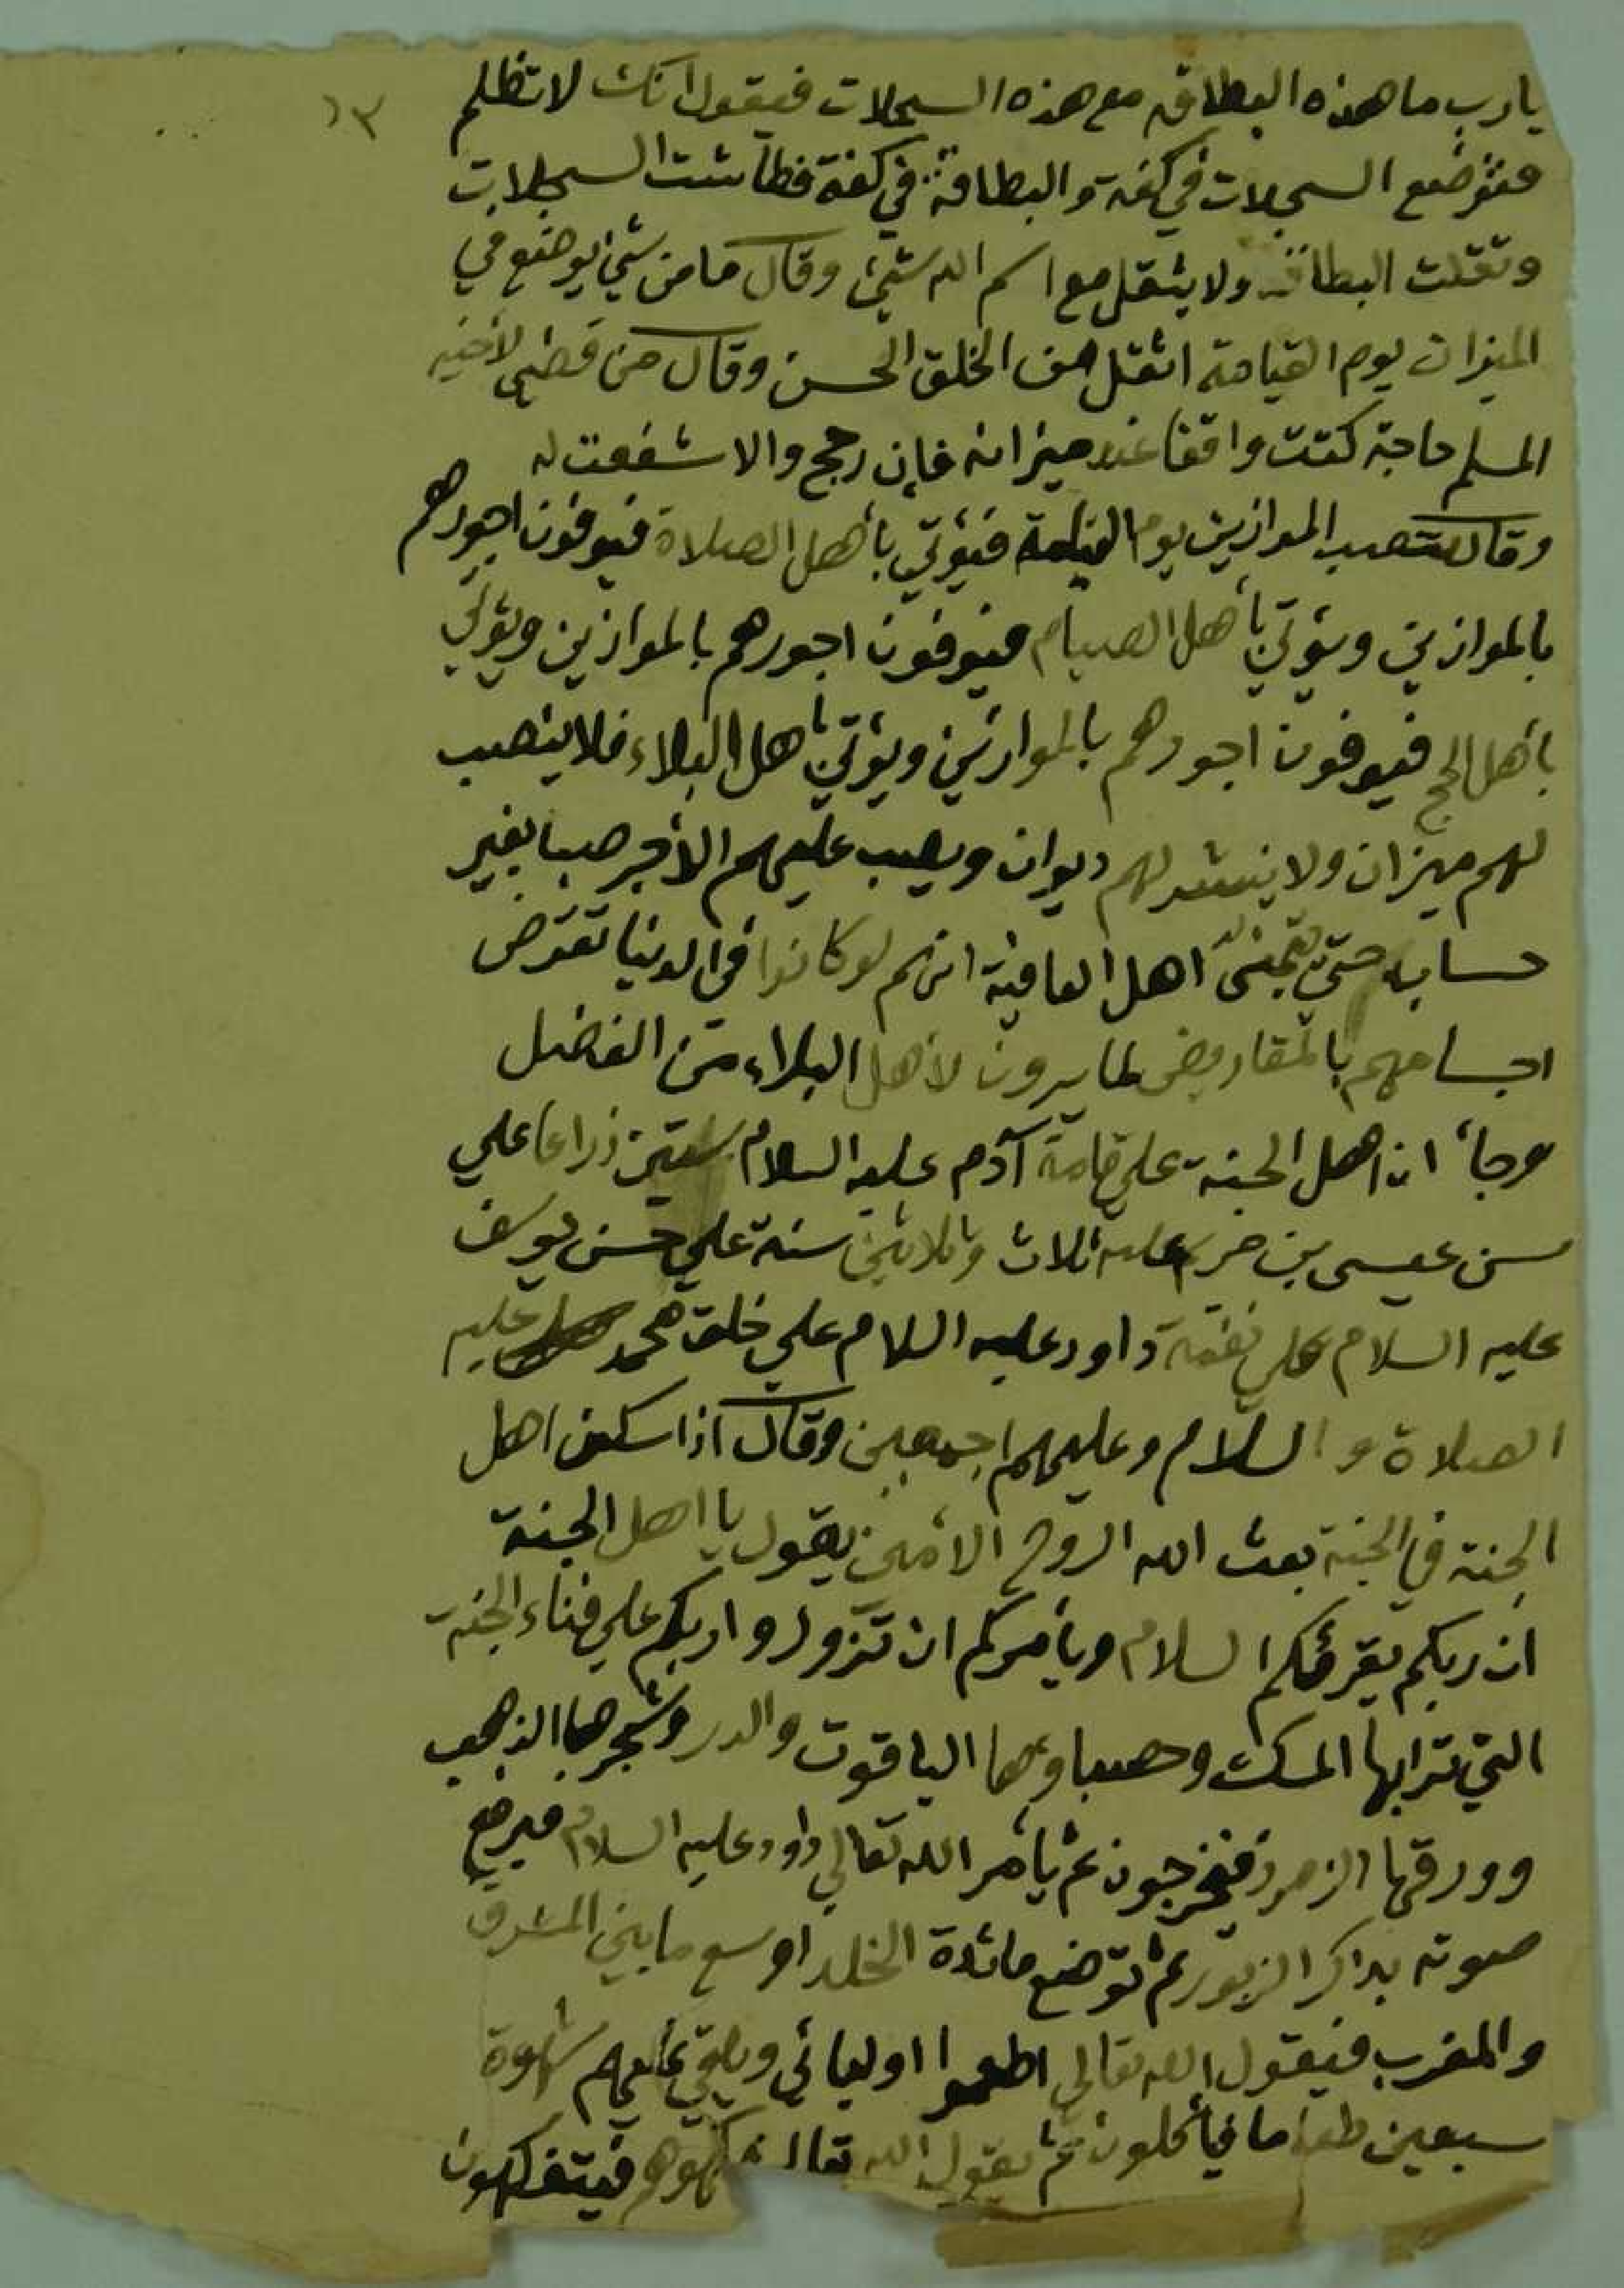 ١٣
يا رب ما هذه البطاقه مع هذه السجلات فيقول انك لا تظلم
فتوضع السجلات في كفة والبطاقة في كفة فطاشت السجلات
وثقلت البطاقه ولا يثقل مع اسم الله شيئ وقال ما من شيئ يوضع في
الميزان يوم القيامة اثقل من الخلق الحسن وقال من قضى لأخيه
المسلم حاجة كنت واقفا عند ميزانه فإن رجح والا شفعت له
وقال تنصب الموازين يوم القيامة فيؤتي بأهل الصلاة فيوفون اجورهم
بالموازين ويؤتي بأهل الصيام فيوفون اجورهم بالموازين ويؤتي
بأهل الحج فيوفون اجورهم بالموازين ويؤتي بأهل البلاء فلا ينصب
لهم ميزان ولا ينشر لهم ديوان ويصب عليهم الأجر صبا بغير
حساب حتى يتمنى اهل العافية انهم لو كانوا في الدنيا تقرض
اجسامهم بالمقاريض لما يرون لأهل البلاء من الفضل
وجاء ان اهل الجنة على قامة آدم عليه السلام ستين ذراعا علي
سن عيسى بن مريم عليه ثلاث وثلاثين سنة علي حسن يوسف
عليه السلام علي نغمة داود عليه السلام علي خلق محمد عليه
الصلاة والسلام وعليهم اجمعين وقال اذا سكن اهل
الجنة في الجنة بعث الله الروح الأمين يقول يا اهل الجنة
ان ربكم يقرئكم السلام ويأمركم ان تزوروا ربكم علي فناء الجنة
التي ترابها المسك وحصباوها الياقوت والدر وشجرها الذهب
وورقها الزمرد فيخرجون ثم يأمر الله تعالي داود عليه السلام فيرفع
صوته بذاكر الزبور ثم توضع مائدة الخلد اوسع ما بين المشرق
والمغرب فيقول الله تعالي اطعموا اوليائي ويلقي عليهم شهوة
سبعين طعاما فيأكلون ثم يقول الله تعالى فكهوهم فيتفكهون